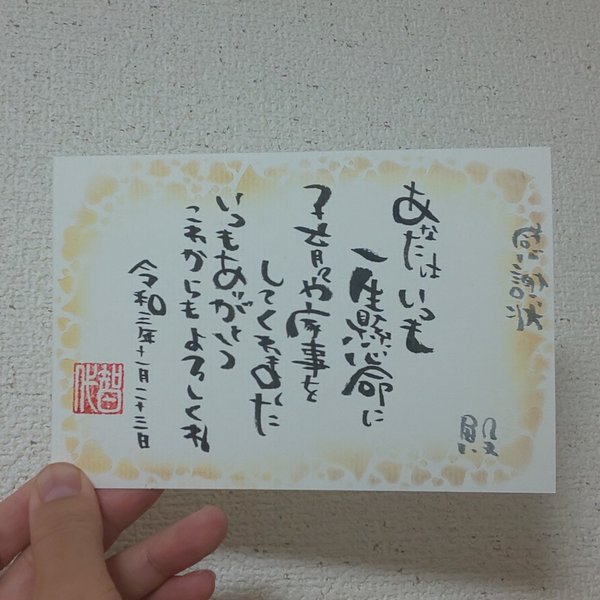 感謝状
殿
あなたはいつも
一生懸命に
子育や家事を
いつもありがとう
これからもよろしくね
令和三年十一月二十三日
智代